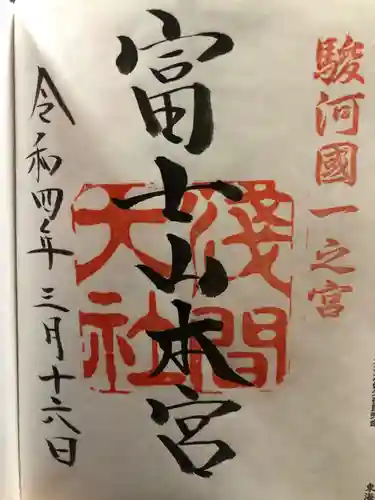 駿河國一之宮
富士山本宮
淺間大社
令和四年三月十六日